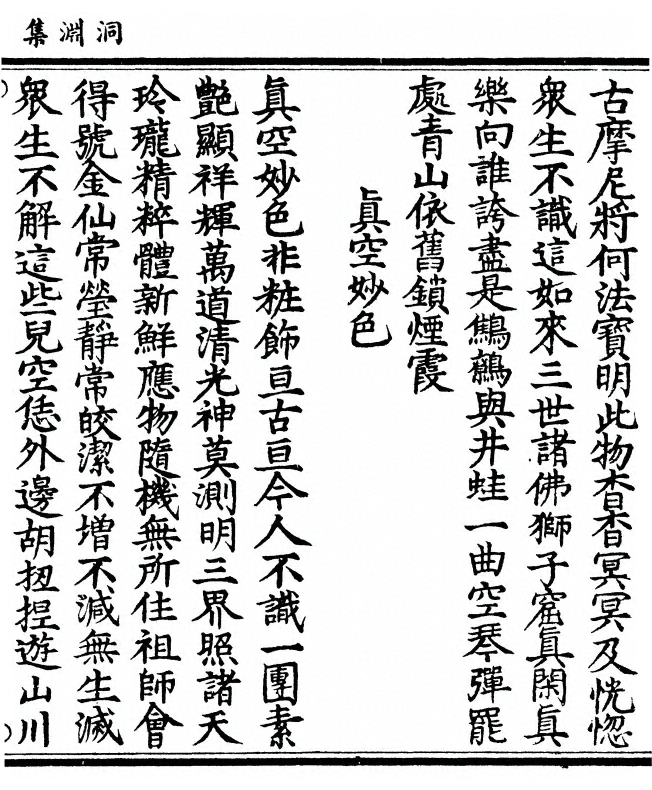 洞淵集
古摩尼將何法寶明此物杳杳冥冥及恍惚
衆生不識這如來三世諸佛獅子窟真閑真
樂向誰誇盡是鷦鷯與井蛙一曲空琴彈罷
處青山依舊鎖煙霞
真空妙色
真空妙色非粧飾亘古亘今人不識一團素
艷顯祥輝萬道清光神莫測明三界照諸天
玲瓏精粹體新鮮應物隨機無所住祖師會
得號金仙常瑩靜常皎潔不增不減無生滅
衆生不解這些兒空恁外邊胡扭捏遊山川